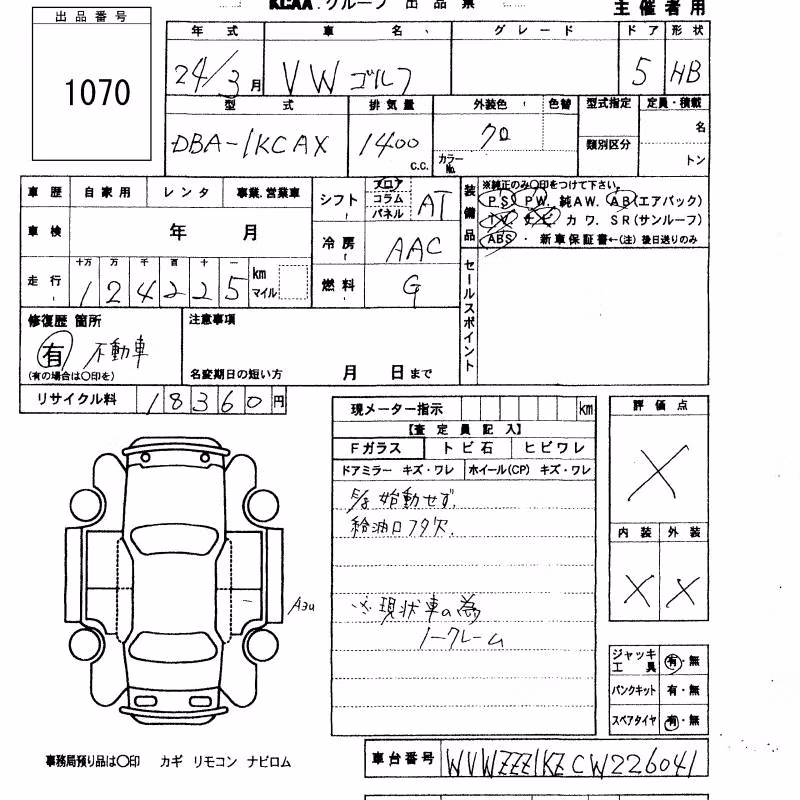 KCAA.グループ 出品票
主催者用
出品番号
1070
年式 車名 グレード ドア 形状
24/3月 VW ゴルフ 5 HB
型式 排気量 外装色 色替 型式指定 定員・積載
DBA-1KCAX 1400 c.c. クロ カラーNo. 類別区分 名
トン
車歴 自家用 レンタ 事業.営業車
車検 年 月
走行 十万 万 千 百 十 一
124225 km マイル
シフト フロア コラム パネル AT
冷房 AAC
燃料 G
装備品 ※純正のみ〇印をつけて下さい。
P.S P.W. 純A.W. A.B(エアバック)
T.V. ナビ. カワ. S.R(サンルーフ)
ABS ・ 新車保証書←(注) 後日送りのみ
セールスポイント
修復歴 箇所
有 不動車
(有の場合は〇印を)
注意事項
名変期日の短い方 月 日まで
リサイクル料 18360円
現メーター指示 km
【査定員記入】
Fガラス トビ石 ヒビワレ
ドアミラー キズ・ワレ ホイール(CP) キズ・ワレ
始動せず.
給油口フタ欠.
※現状車の為
ノークレーム
評価点
X
内装 外装
X X
ジャッキ工具 有・無
パンクキット 有・無
スペアタイヤ 有・無
事務局預り品は〇印 カギ リモコン ナビロム
車台番号 WVWZZZ1KZCW226041